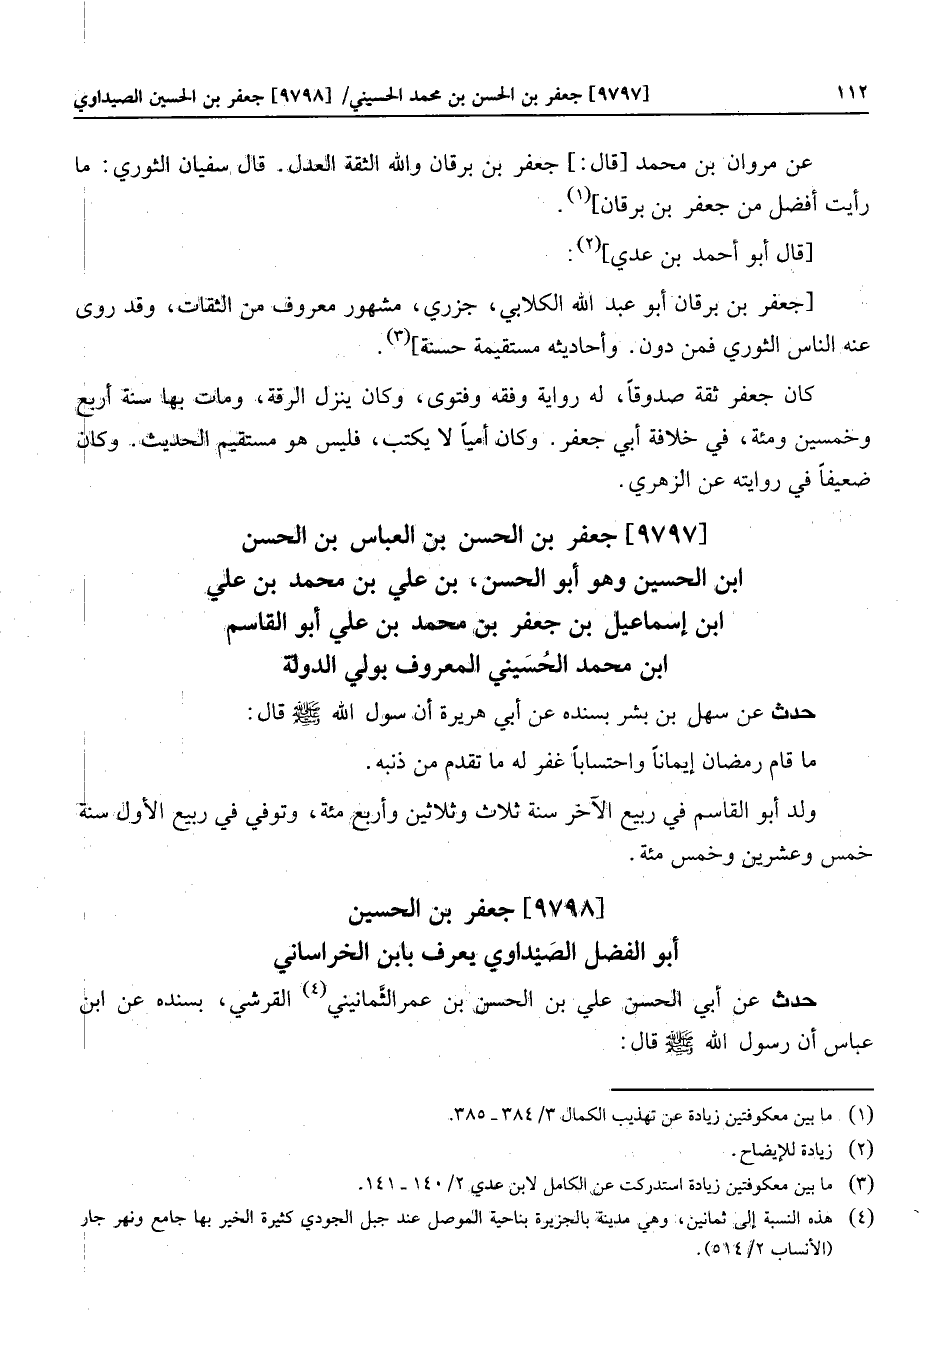 ١١٢ [٩٧٩٧] جعفر بن الحسن بن محمد الحسيني/ [٩٧٩٨] جعفر بن الحسين الصيداوي
عن مروان بن محمد [قال:] جعفر بن برقان والله الثقة العدل. قال سفيان الثوري: ما
رأيت أفضل من جعفر بن برقان](١).
[قال أبو أحمد بن عدي](٢):
[جعفر بن برقان أبو عبد الله الكلابي، جزري، مشهور معروف من الثقات، وقد روى
عنه الناس الثوري فمن دون. وأحاديثه مستقيمة حسنة](٣).
كان جعفر ثقة صدوقاً، له رواية وفقه وفتوى، وكان ينزل الرقة، ومات بها سنة أربع
وخمسين ومئة، في خلافة أبي جعفر. وكان أمياً لا يكتب، فليس هو مستقيم الحديث. وكان
ضعيفاً في روايته عن الزهري.
[٩٧٩٧] جعفر بن الحسن بن العباس بن الحسن
ابن الحسين وهو أبو الحسن، بن علي بن محمد بن علي
ابن إسماعيل بن جعفر بن محمد بن علي أبو القاسم
ابن محمد الحُسَيني المعروف بولي الدولة
حدث عن سهل بن بشر بسنده عن أبي هريرة أن سول الله ﷺ قال:
ما قام رمضان إيماناً واحتساباً غفر له ما تقدم من ذنبه.
ولد أبو القاسم في ربيع الآخر سنة ثلاث وثلاثين وأربع مئة، وتوفي في ربيع الأول سنة
خمس وعشرين وخمس مئة.
[٩٧٩٨] جعفر بن الحسين
أبو الفضل الصَيْداوي يعرف بابن الخراساني
حدث عن أبي الحسن علي بن الحسن بن عمرالثَّمانيني(٤) القرشي، بسنده عن ابن
عباس أن رسول الله ﷺ قال:
(١) ما بين معكوفتين زيادة عن تهذيب الكمال ٣/ ٣٨٤ ـ ٣٨٥.
(٢) زيادة للإيضاح.
(٣) ما بين معكوفتين زيادة استدركت عن الكامل لابن عدي ٢/ ١٤٠ ـ ١٤١.
(٤) هذه النسبة إلى ثمانين، وهي مدينة بالجزيرة بناحية الموصل عند جبل الجودي كثيرة الخير بها جامع ونهر جار
(الأنساب ٢/ ٥١٤).